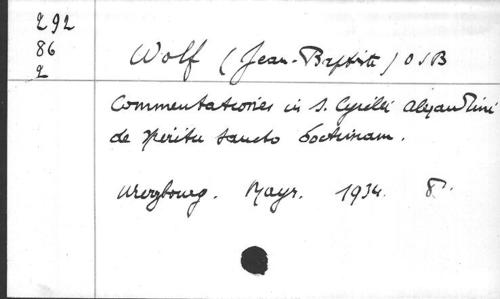 292
86
2
Wolf (Jean-Baptiste) OSB
Commentationes in S. Cyrilli Alexandrini
de Spiritu Sancto doctrinam.
Wurzbourg. Mayr. 1934. 8°.